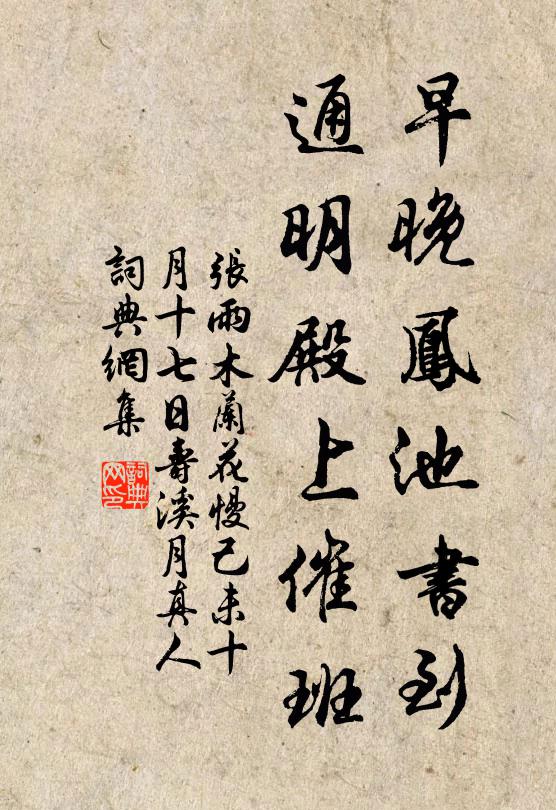 早晚鳳池書到
通明殿上催班
張雨木蘭花慢己未十
月十七日壽溪月真人
詞典網集
詞典網印